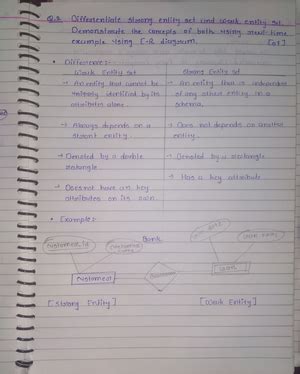 Q.3. Differentiate strong entity set and weak entity set.
Demonstrate the concepts of both using real-time
example using E-R diagram.
• Difference:-
Weak Entity set
Strong Entity set
→ An entity that cannot be
uniquely identified by its
attributes alone.
→ An entity that is independent
of any other entity in a
schema.
→ Always depends on a
strong entity.
→ Does not depends on another
entity.
→ Denoted by a double
rectangle.
→ Denoted by a rectangle
→ Does not have an key
attributes on its own.
→ Has a key attribute
• Example:-
Bank
customer_id
customer
loan
[Strong Entity]
[Weak Entity]